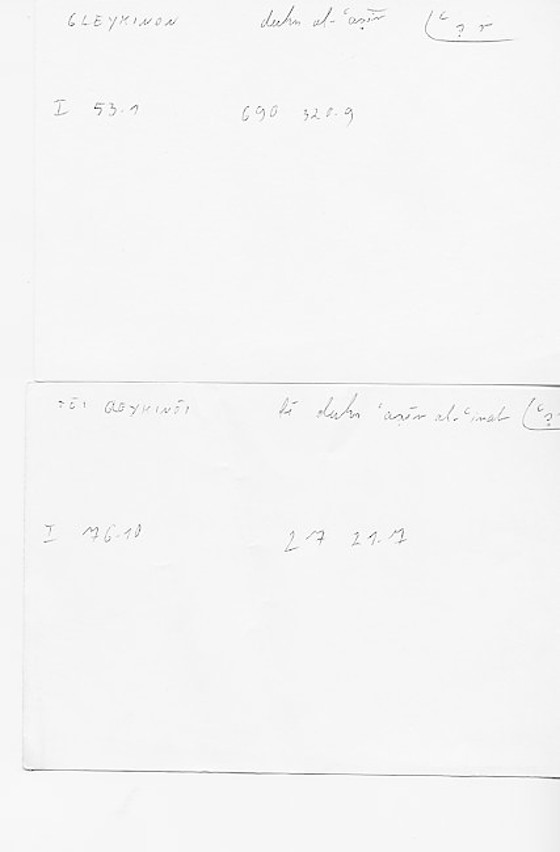 GLEYKINON duhn al-ʿaṣīr (ʿṣr
I 53.1 690 320.9
TŌI GLEYKINŌI bi duhn ʿaṣīr al-ʿinab (ʿṣ
I 76.10 27 21.7